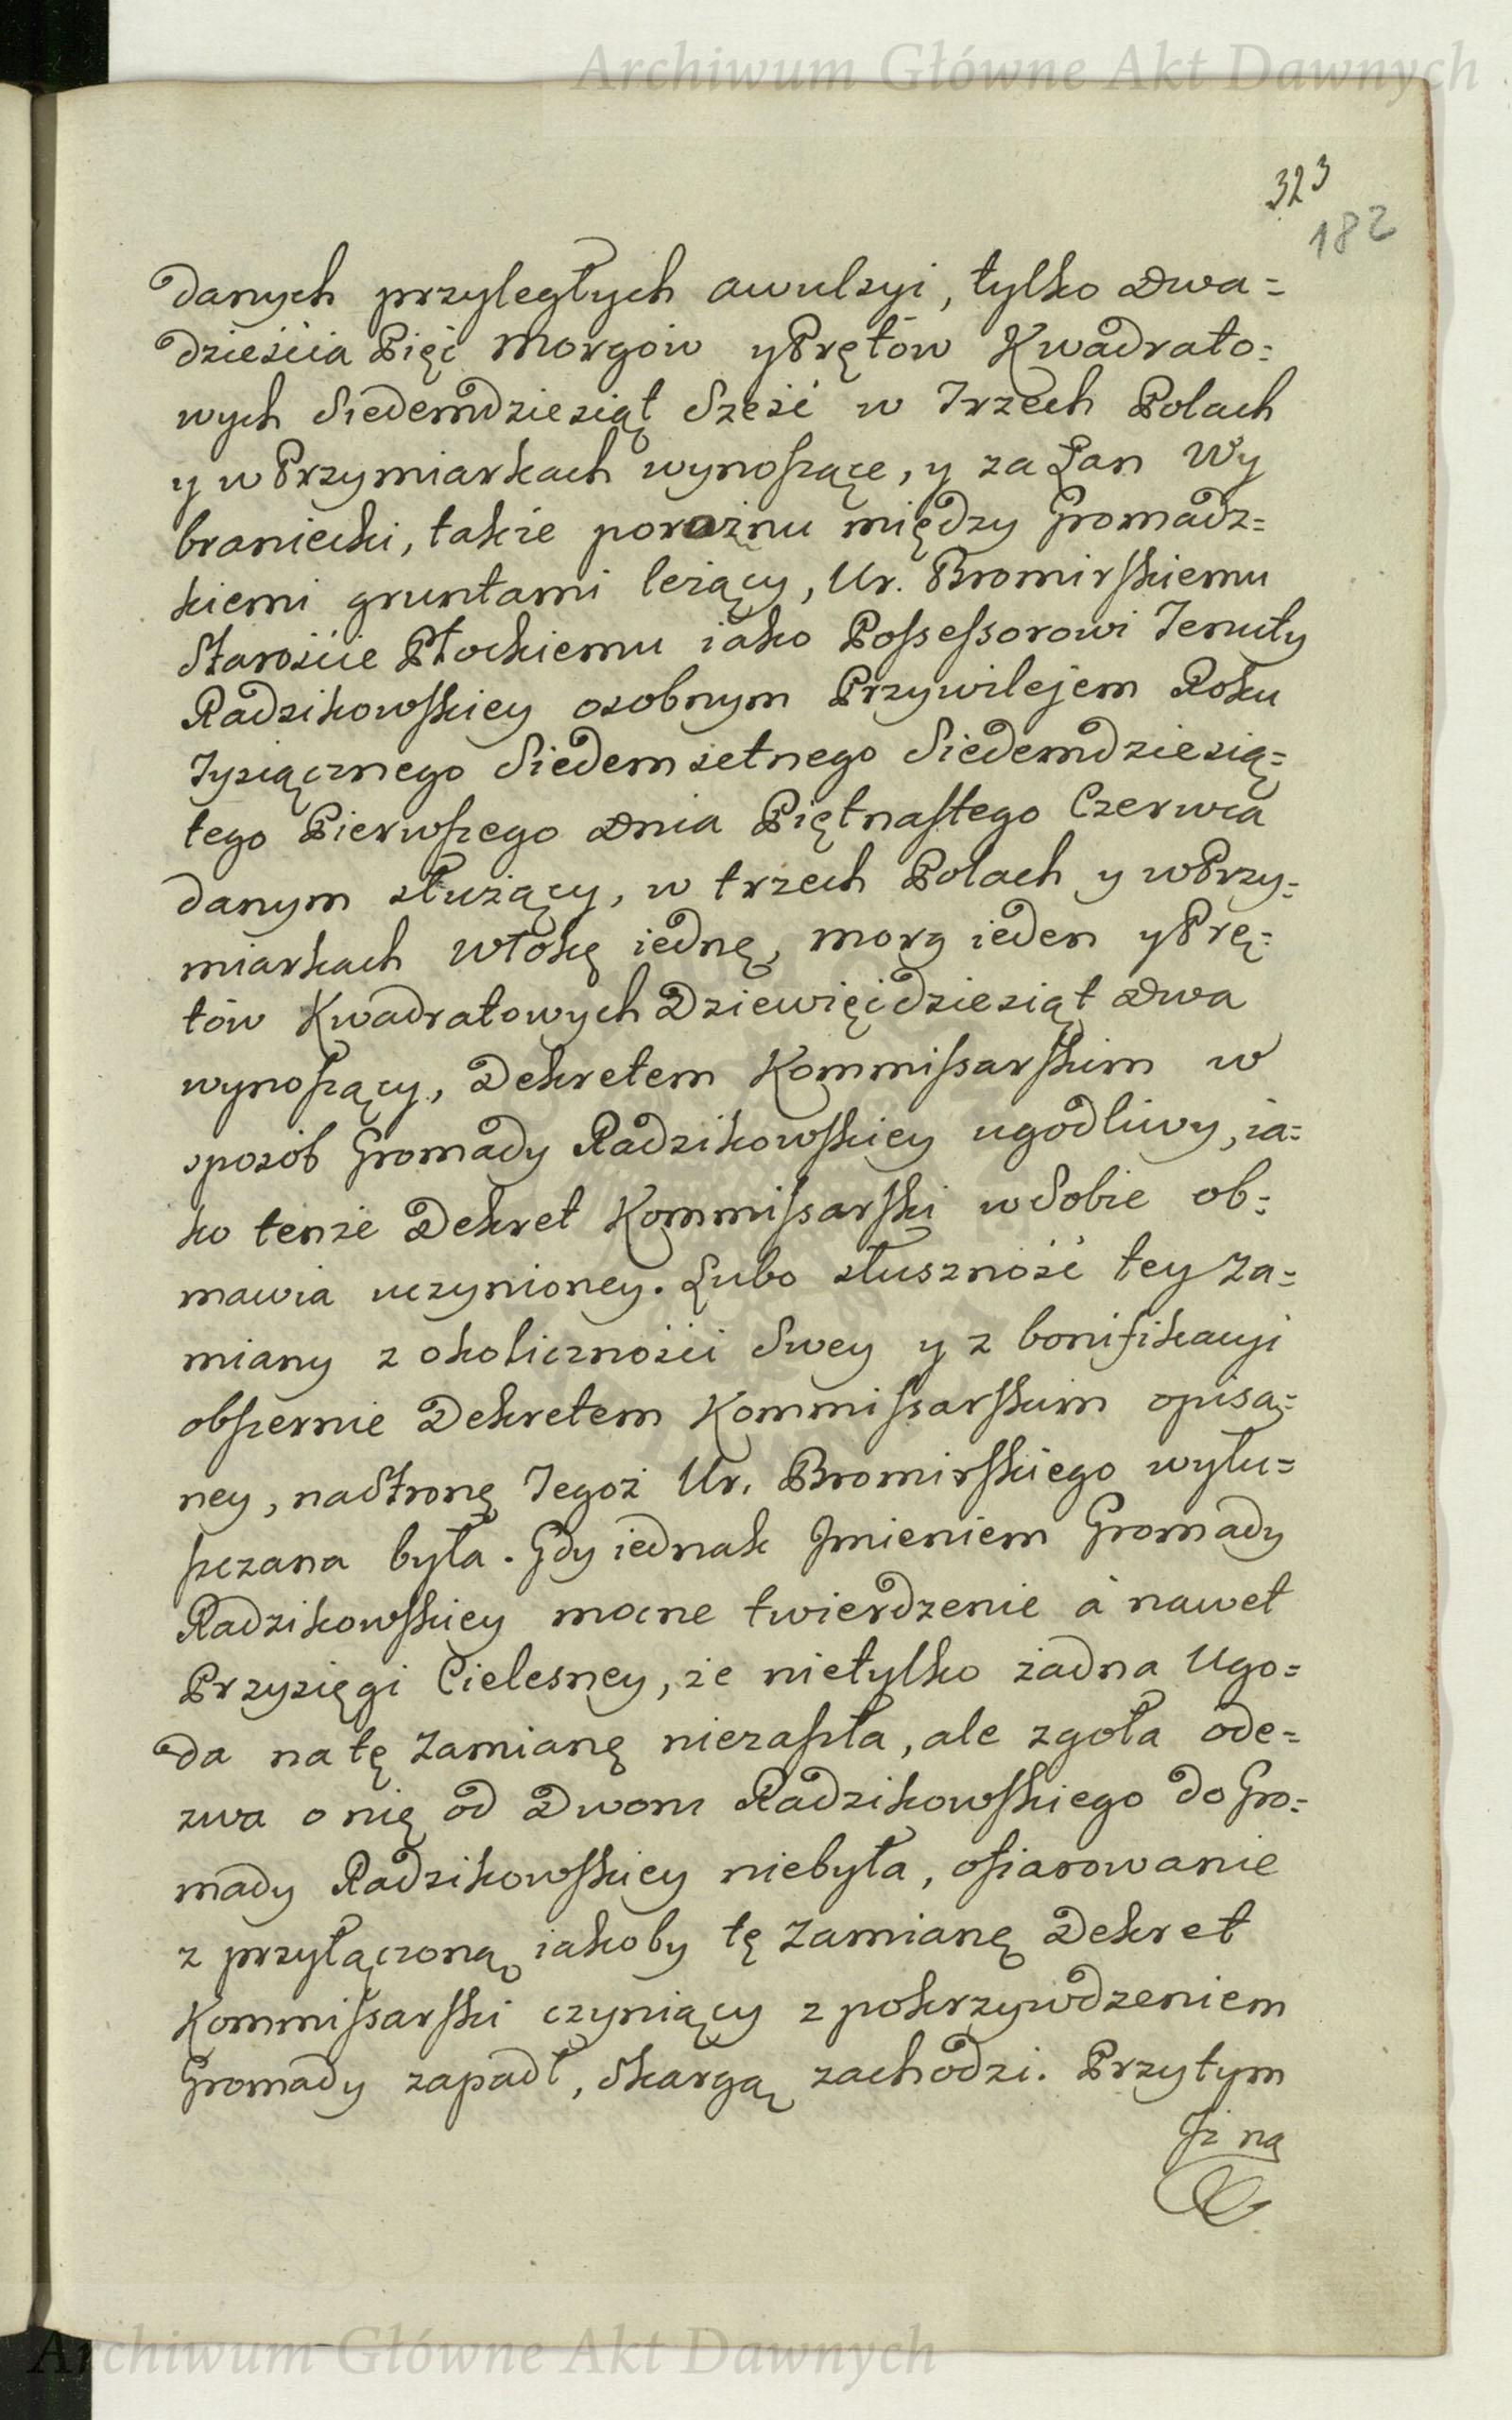 Archiwum Główne Akt Dawnych
323
182
danych przyległych awulsyi, tylko dwa=
dzieścia Pięć Morgow y Prętow Kwadrato=
wych Siedemdziesiąt Sześć w Trzech Polach
y w Przymiarkach wynoszące, y za Łan Wy
braniecki, także porożnu między Gromadz=
kiemi gruntami leżący, Ur. Bromirskiemu
Starościе Płockiemu iako Possessorowi Tenuty
Radzikowskiey osobnym Przywilejem Roku
Tysiącznego Siedemsetnego Siedemdziesią=
tego Pierwszego Dnia Piętnastego Czerwca
danym służący, w trzech Polach y w Przy=
miarkach Włokę iednę, morg ieden y Prę=
tów Kwadratowych Dziewięćdziesiąt dwa
wynoszący, Dekretem Kommissarskim w
sposób Gromady Radzikowskiey ugodliwy, ia=
ko tenże Dekret Kommissarski w Sobie ob=
mawia uczynioney. Lubo słuszność tey Za=
miany z okoliczności Swey y z bonifikacyi
obszernie Dekretem Kommissarskim opisa=
ney, na Stronę Tegoż Ur. Bromirskiego wyłu=
szczana była. Gdy iednak Jmieniem Gromady
Radzikowskiey mocne twierdzenie á nawet
Przysięgi Cielesney, że nietylko żadna Ugo=
da na tę Zamianę niezaszła, ale zgoła ode=
zwa o nię od Dworu Radzikowskiego do Gro=
mady Radzikowskiey niebyła, ofiarowanie
z przyłączoną iakoby tę Zamianę Dekret
Kommissarski czyniący z pokrzywdzeniem
Gromady zapadł, Skargą zachodzi. Przytym
Jż na
Archiwum Główne Akt Dawnych